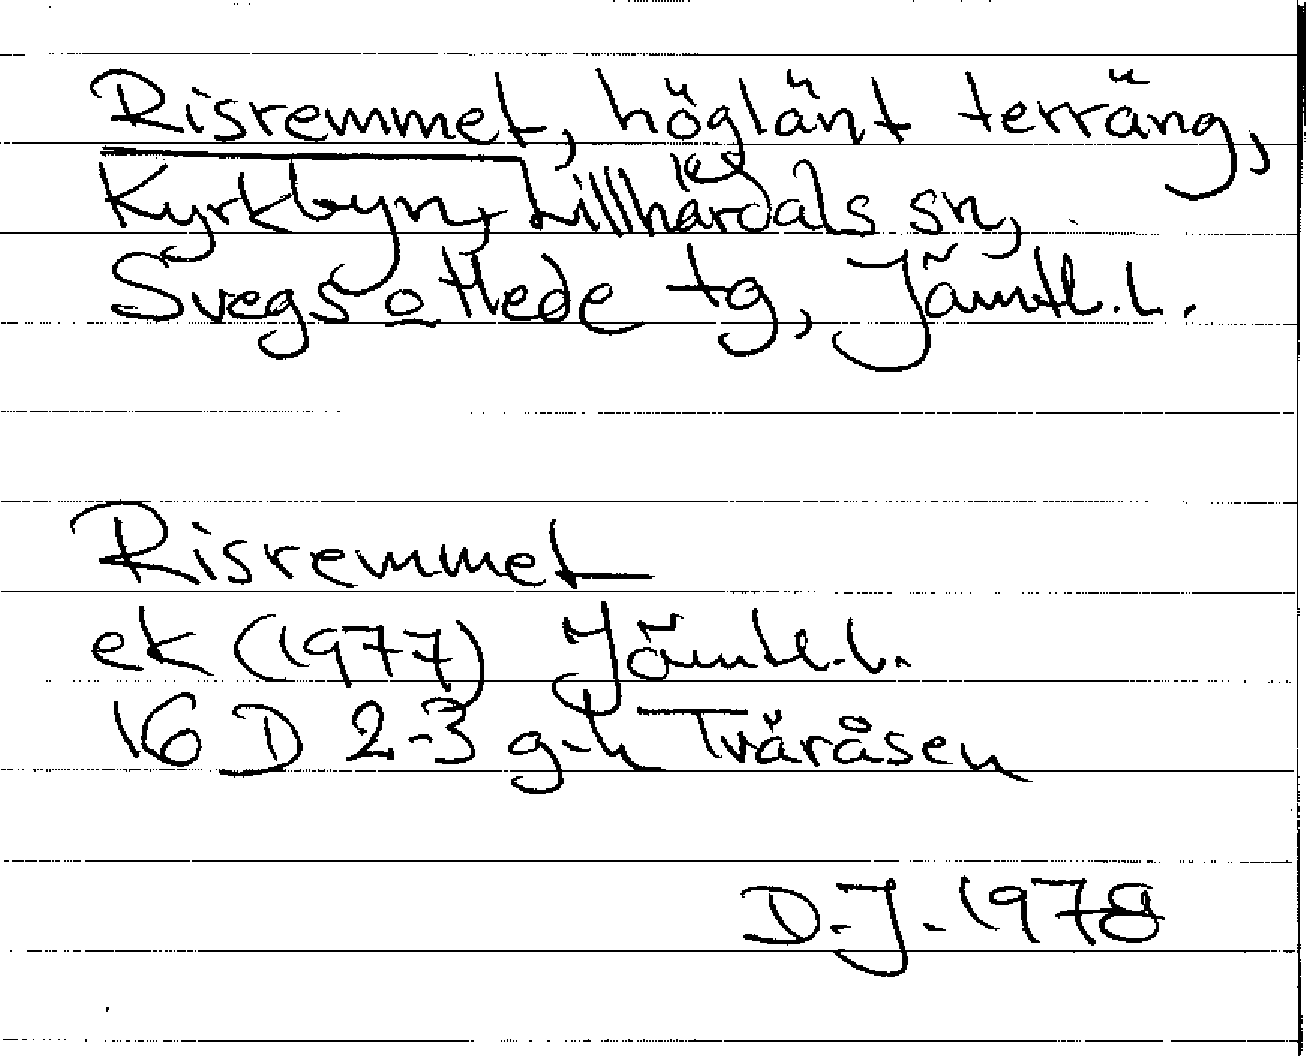 Risremmet, höglänt terräng,
Kyrkbyn, Lillhärdals sn,
Svegs o Hede tg, Jämtl.l.
Risremmet
ek (1977) Jämtl.l.
16 D 2-3 g-h Tväråsen
D.J. 1978